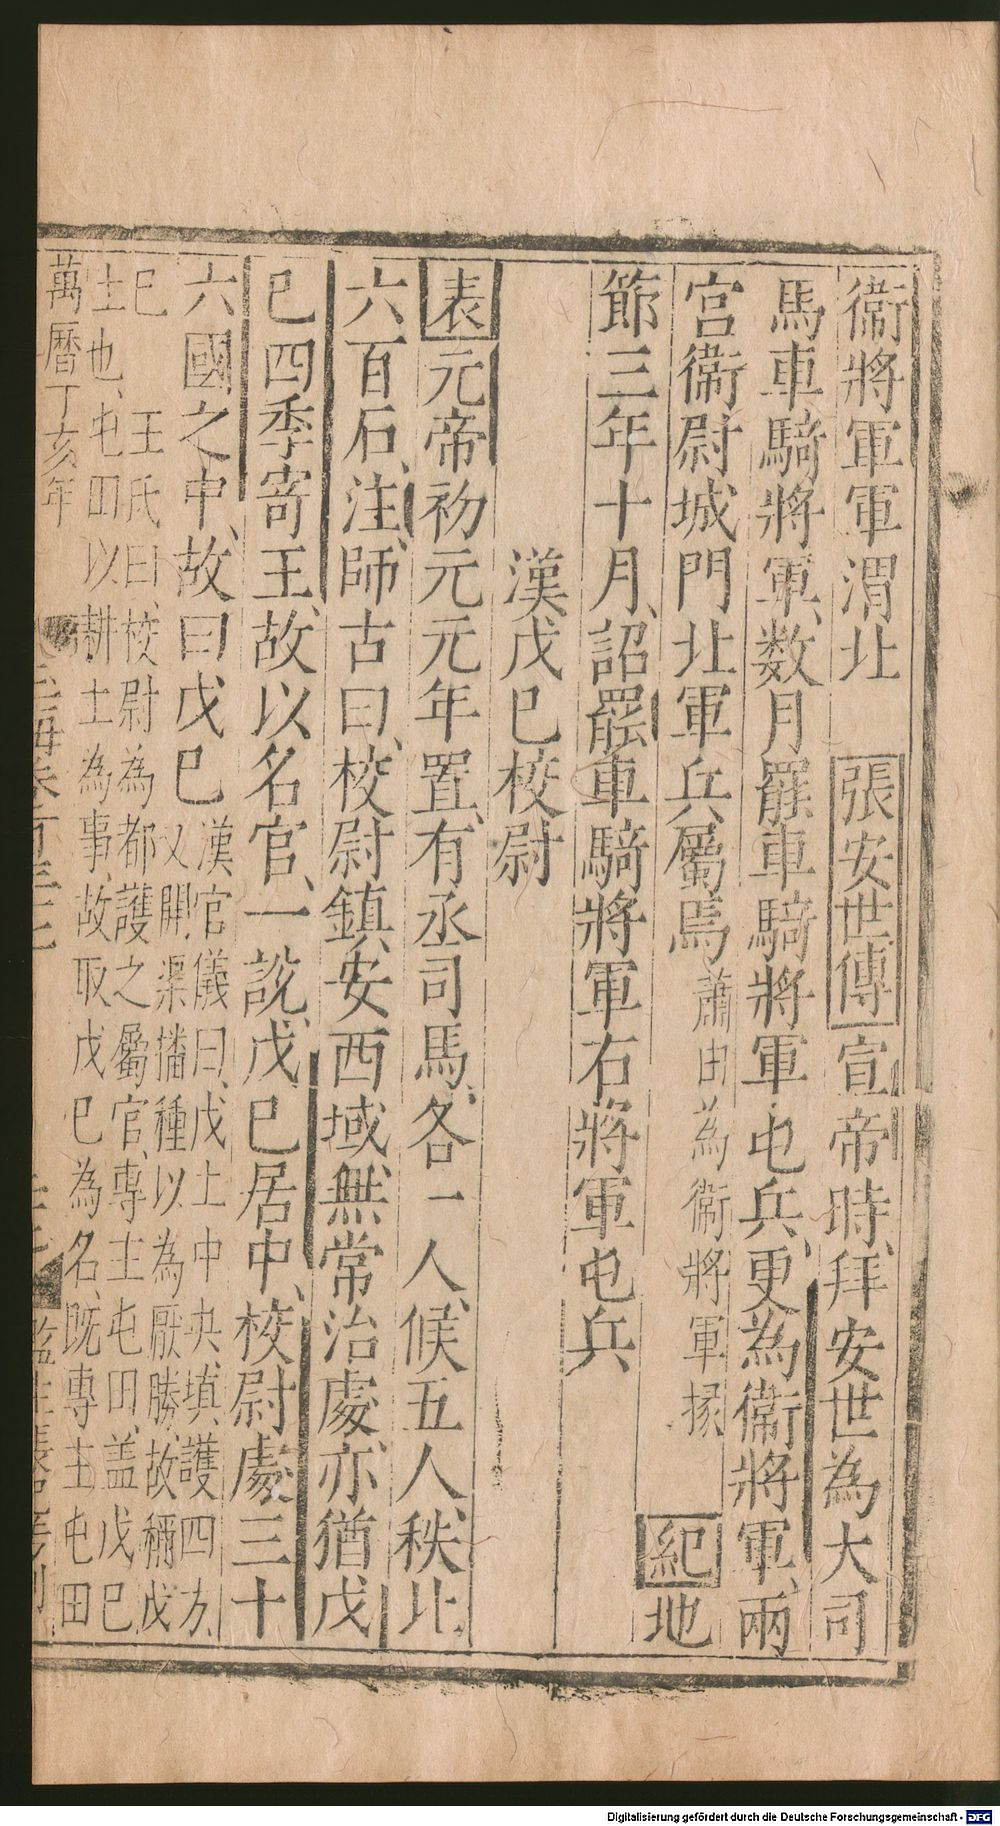 衞將軍軍渭北　張安世傳宣帝時、拜安世為大司
馬車騎將軍、数月罷車騎將軍屯兵、更為衞將軍、兩
宮衞尉城門北軍兵屬焉蕭由為衞將軍掾　紀地
節三年十月、詔罷車騎將軍右將軍屯兵
漢戊巳校尉
表元帝初元元年置、有丞司馬、各一人、候五人、秩比
六百石、注、師古曰、校尉鎮安西域、無常治處、亦猶戊
巳四季寄王、故以名官、一說、戊巳居中、校尉處三十
六國之中、故曰戊巳
漢官儀曰、戊土中央、填護四方、
又開渠播種以為厭勝、故稱戊
巳　王氏曰、校尉為都護之屬官、專主屯田、盖戊巳
土也、屯田以耕土為事、故取戊巳為名、既專主屯田
萬曆丁亥年
Digitalisierung gefördert durch die Deutsche Forschungsgemeinschaft - DFG